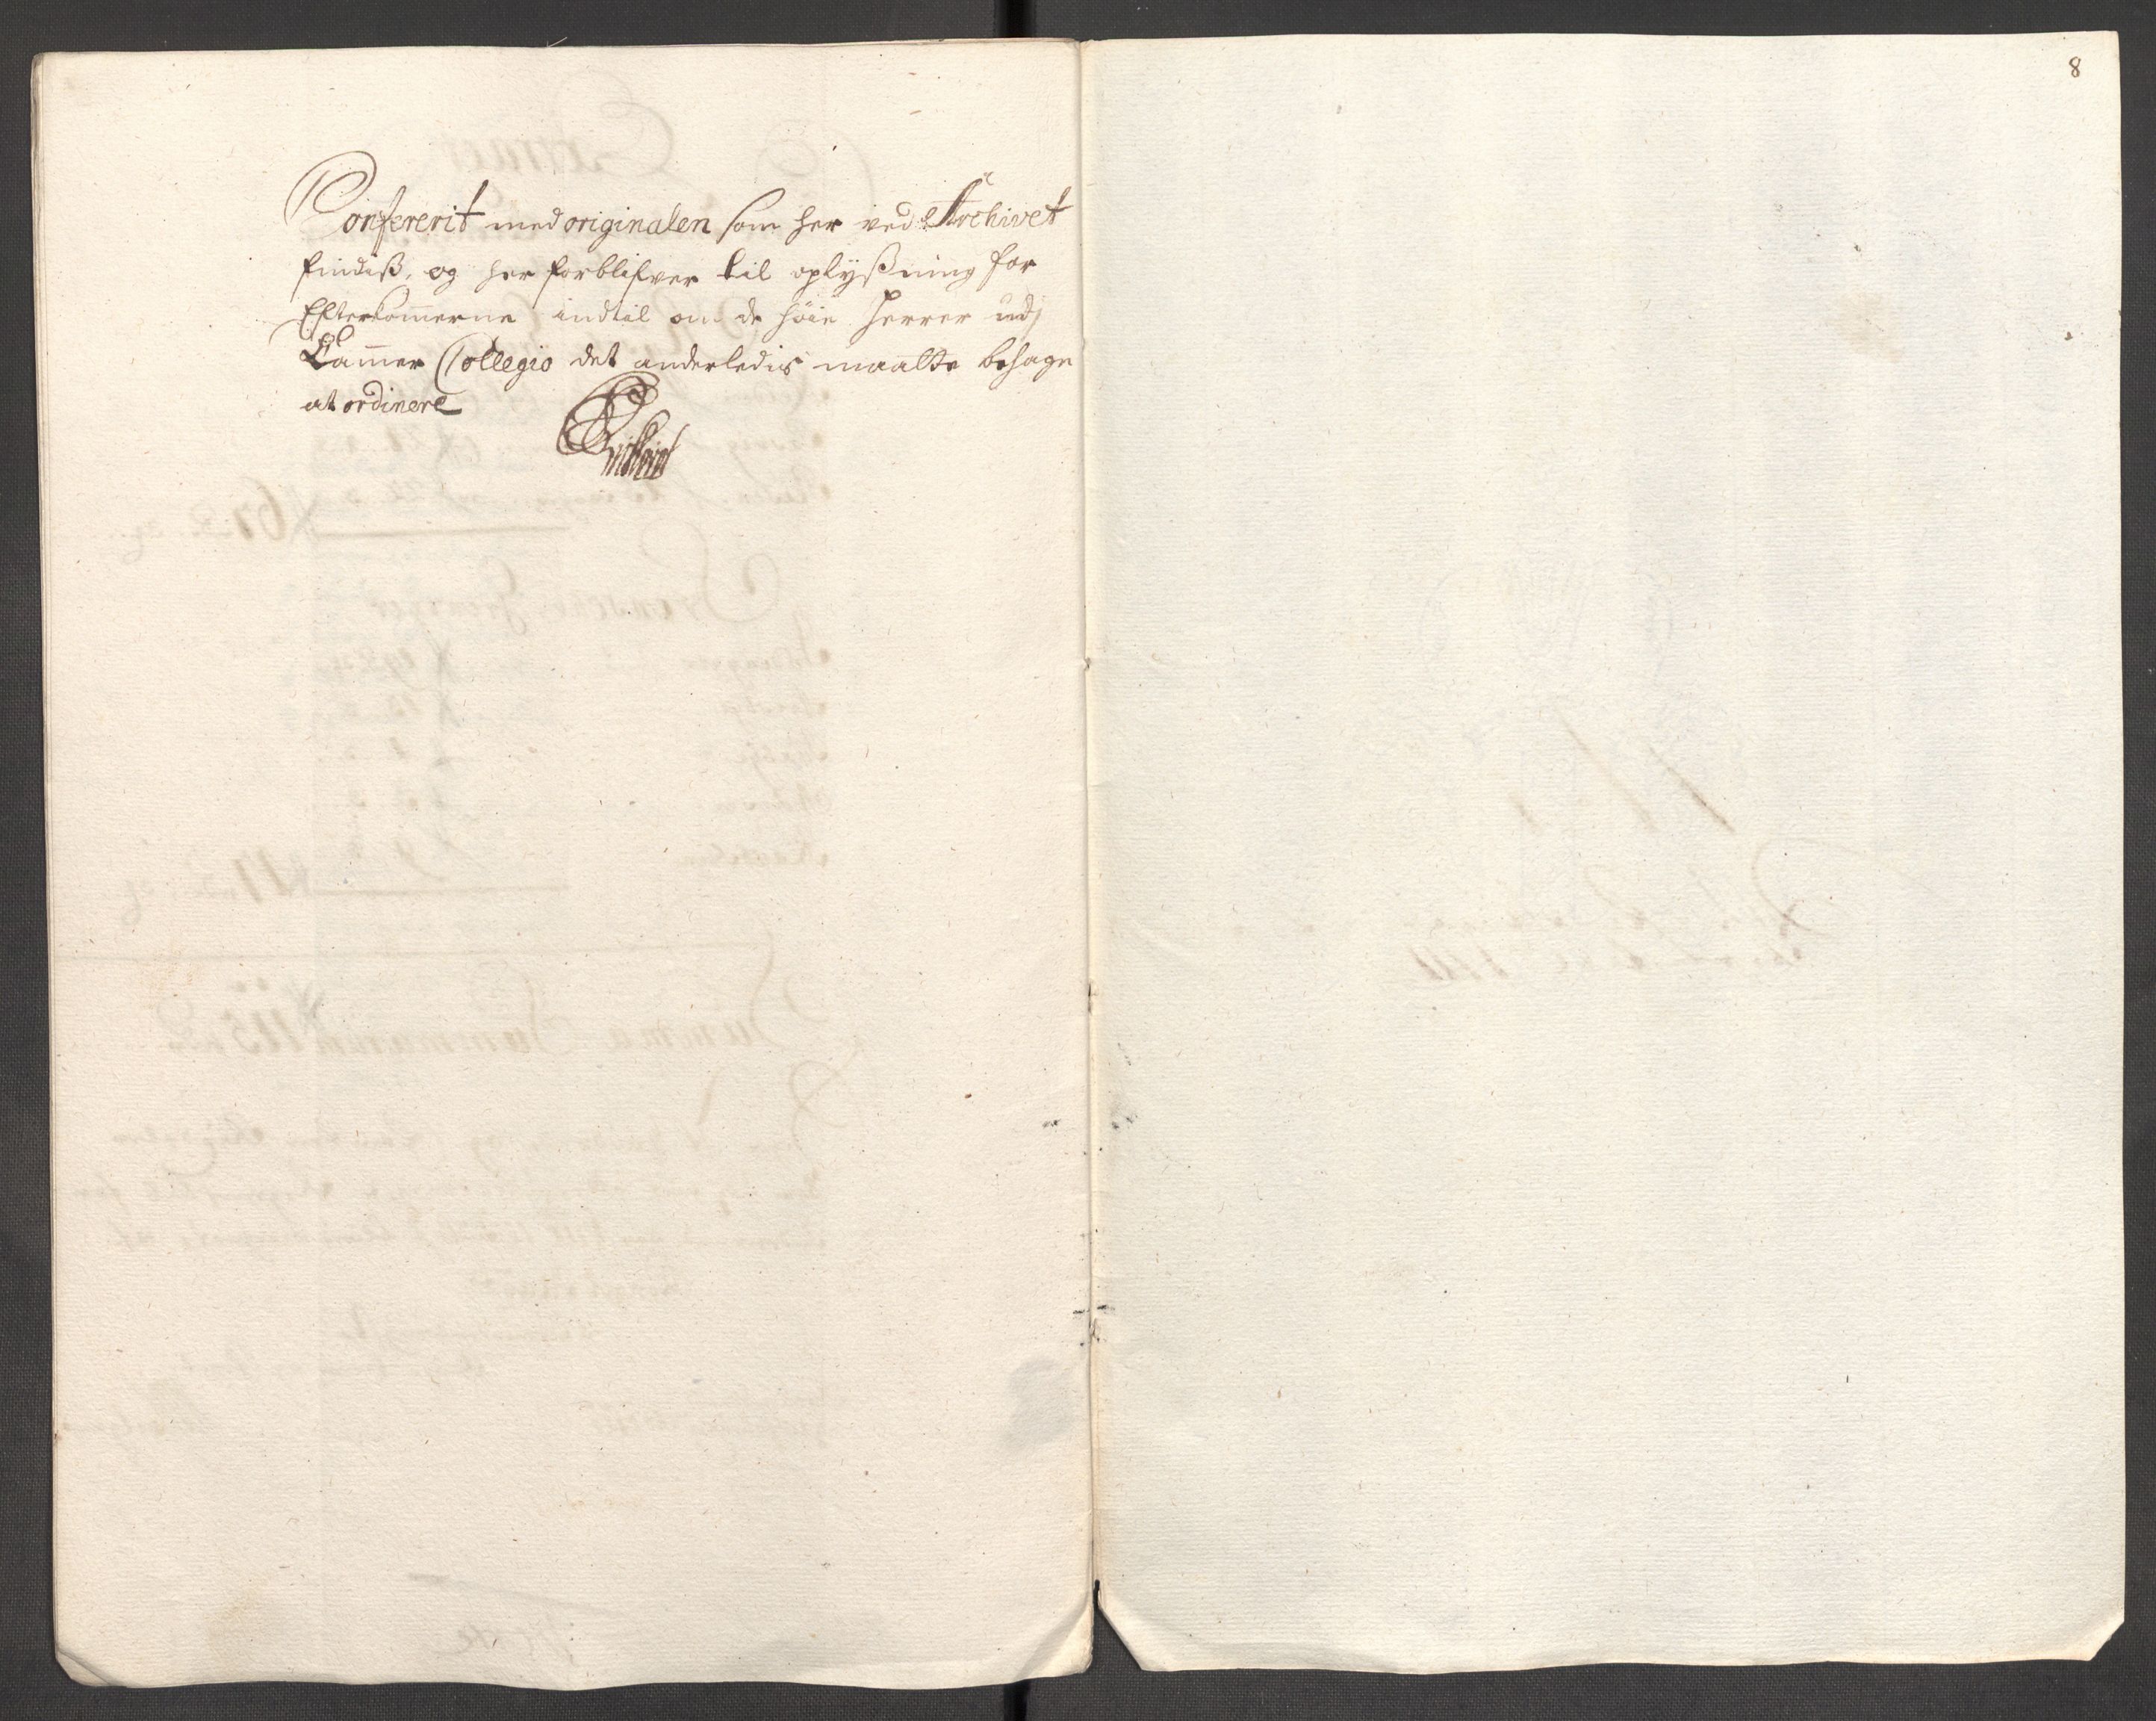 Confererit med originalen som her ved Archivet
findiß, og her forblifver til oplyßning for
Efterkom̄erne indtil om de høie Herrer udj
Cam̄er Collegio det anderledis maatte behage
at ordinere
8